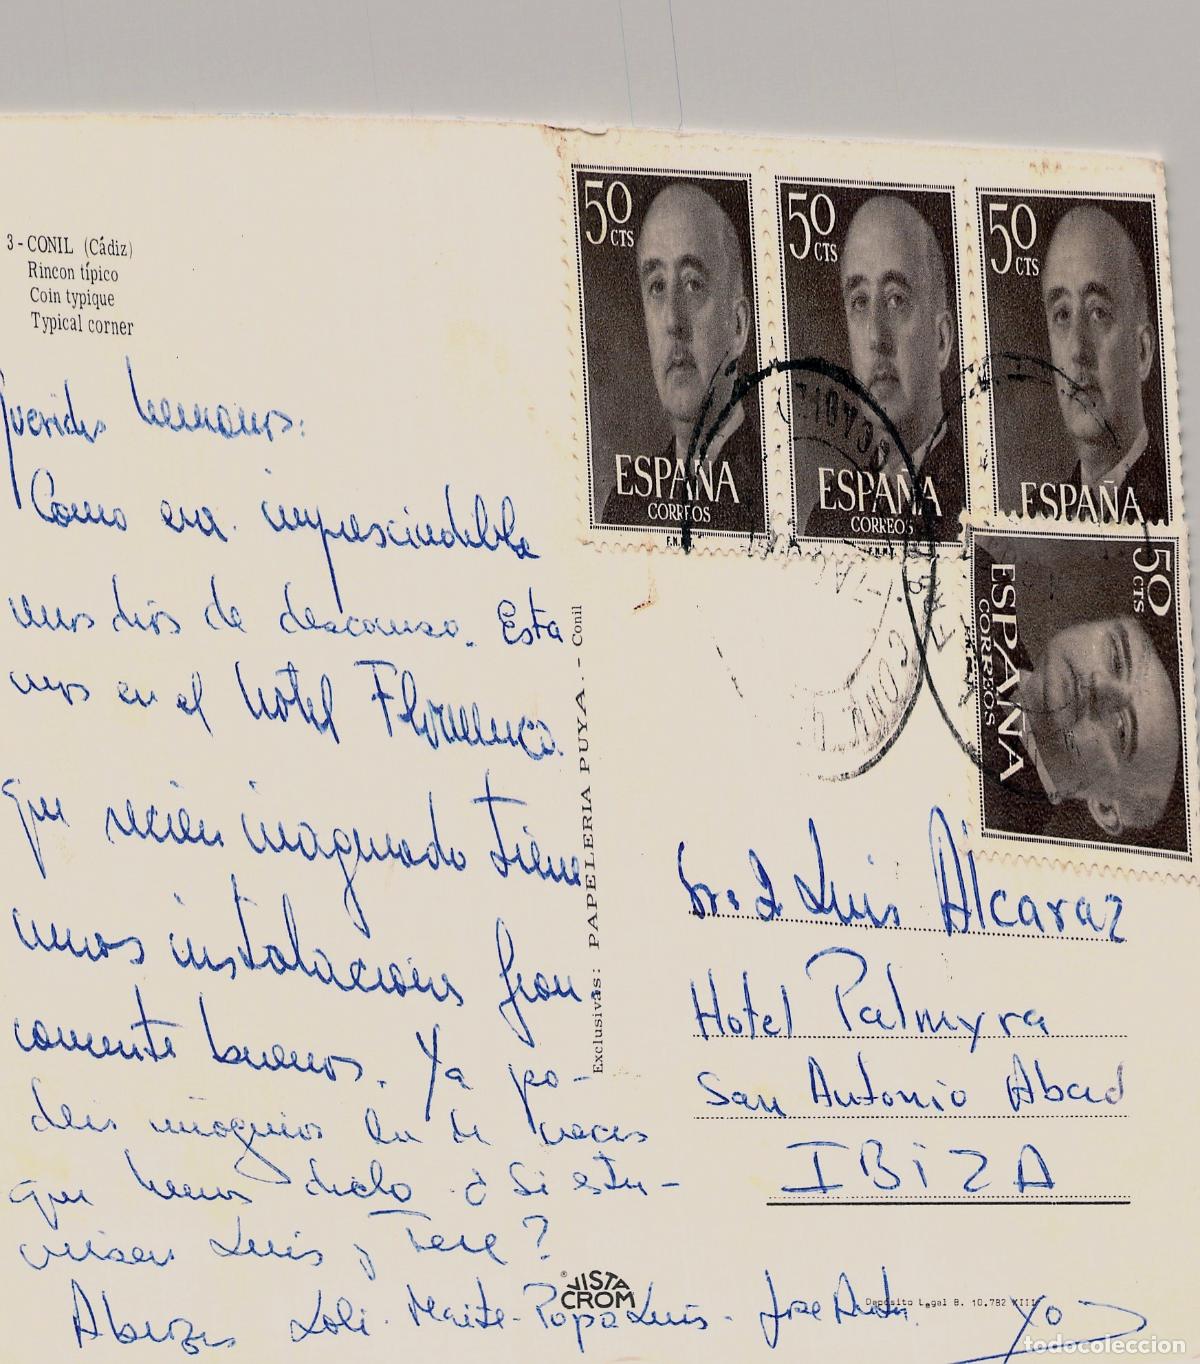 3 - CONIL (Cádiz)
Rincon típico
Coin typique
Typical corner
Queridos hermanos:
Como era imprescindible
unos dias de descanso. Esta
mos en el Hotel Flamenco
que recien inaugurado tiene
unas instalaciones fran-
camente buenas. Ya po-
deis imaginaros la de veces
que hemos dicho ¿Si estu-
viesen Luis y Tere?
Abrazos Loli - Maite - Papa Luis -
Yo
Exclusivas: PAPELERIA PUYA. - Conil
50 CTS
ESPAÑA
CORREOS
F.N.M.T.
50 CTS
ESPAÑA
CORREOS
F.N.M.T.
50 CTS
ESPAÑA
50 CTS
ESPAÑA
CORREOS
(CADIZ)
CONIL
Sr. D Luis Alcaraz
Hotel Palmyra
San Antonio Abad
IBIZA
VISTA
CROM
Depósito Legal B. 10.782 XIII
todocoleccion